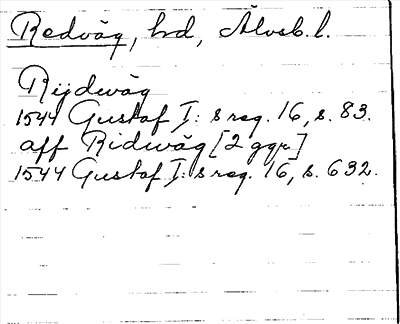 Redväg, hd, Älvsb. l.
Rijdwäg
1544 Gustaf I:s reg. 16, s. 83.
aff Ridwäg [2 ggr]
1544 Gustaf I:s reg. 16, s. 632.